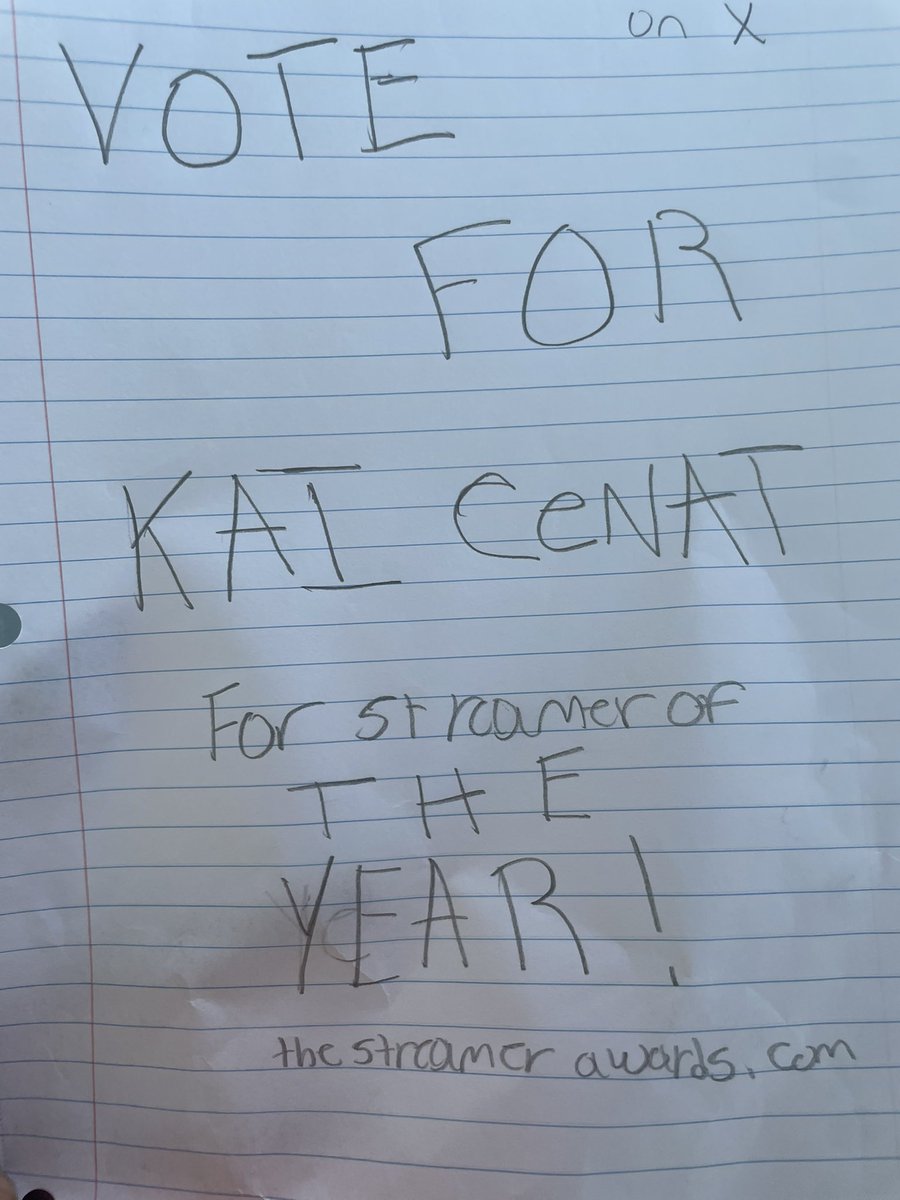 on X
VOTE
FOR
KAI CeNAT
For streamer of
THE
YEAR!
the streamer awards.com